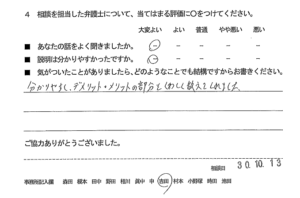 4 相談を担当した弁護士について、当てはまる評価に○をつけてください。
大変よい よい 普通 やや悪い 悪い
■ あなたの話をよく聞きましたか。 ○ ― ― ― ―
■ 説明は分かりやすかったですか。 ○ ― ― ― ―
■ 気がついたことがありましたら、どのようなことでも結構ですからお書きください。
分かりやすく、デメリット・メリットの部分をくわしく教えてくれました。
ご協力ありがとうございました。
相談日 30.10.13
事務所記入欄 森田 榎本 田中 野田 桂川 眞中 申 吉田 村本 小野塚 時田 池田